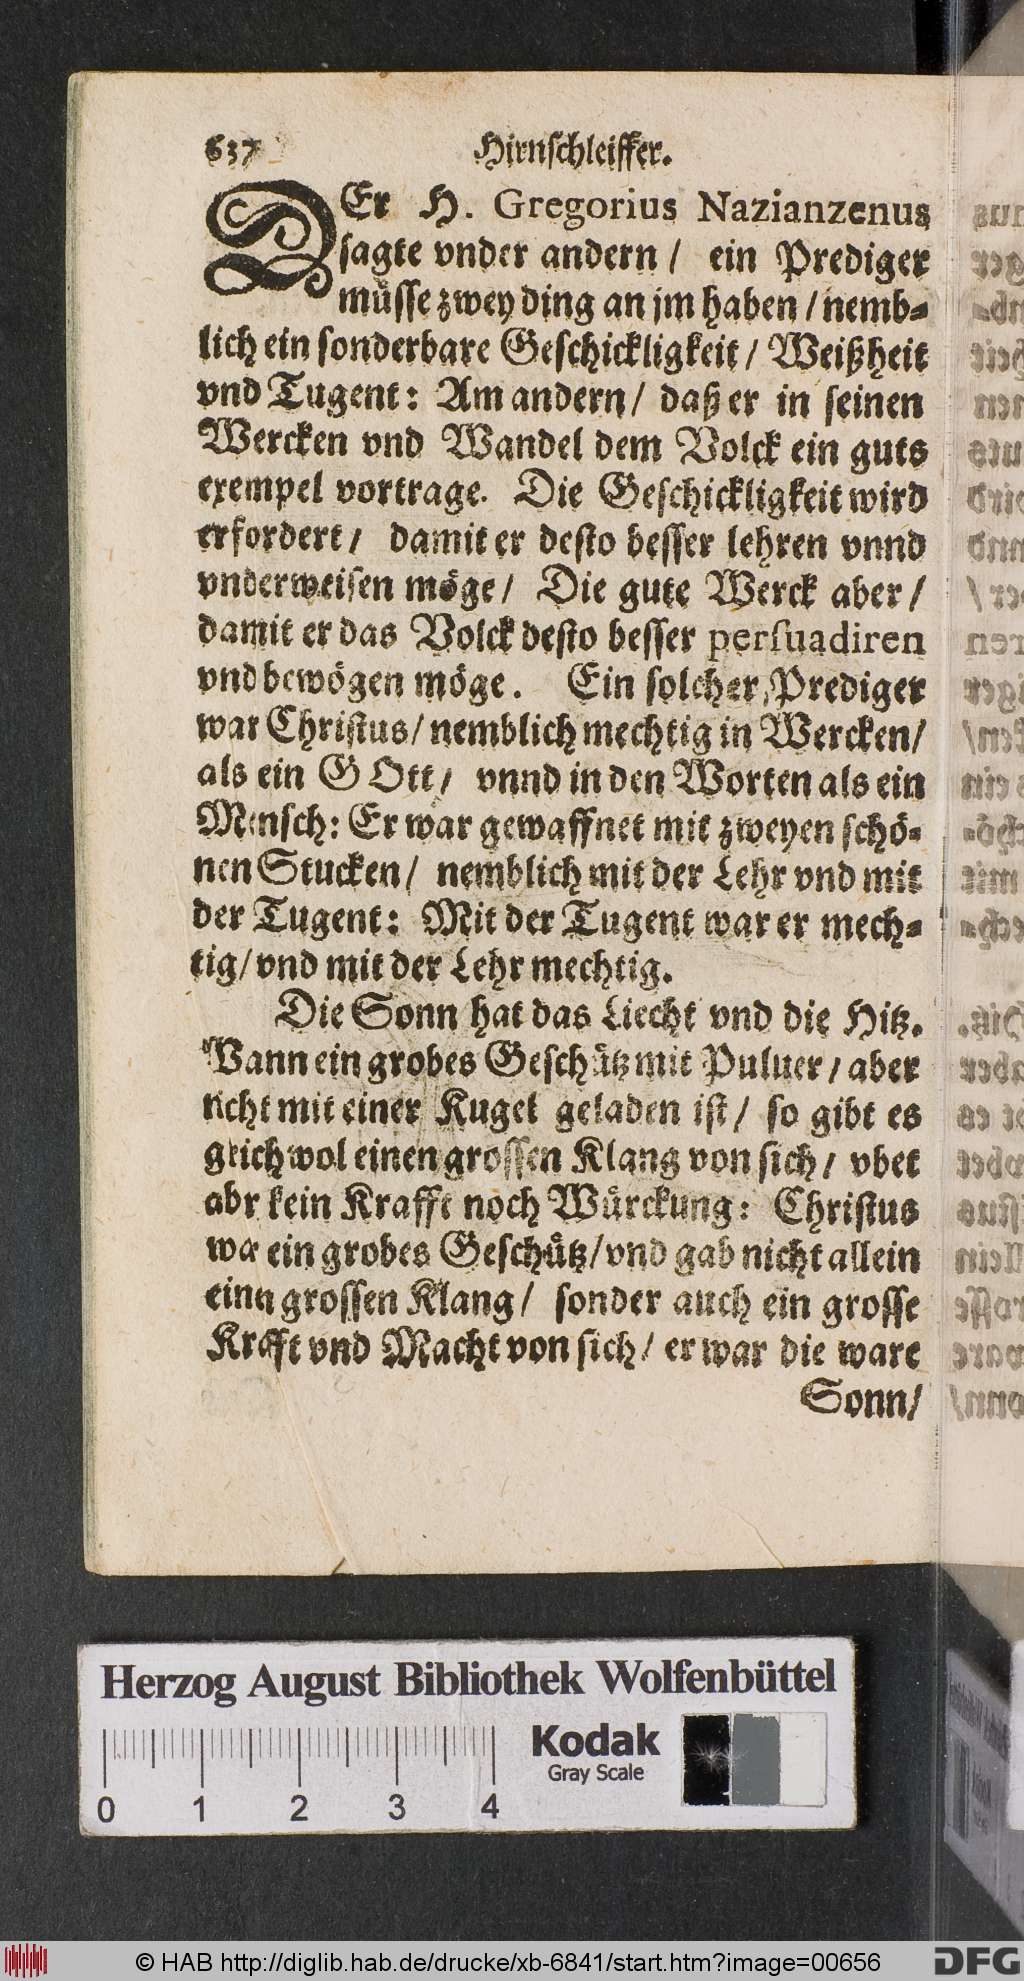 637 Hirnschleiffer.
DEr H. Gregorius Nazianzenus
sagte vnder andern / ein Prediger
müsse zwey ding an jm haben / nemb-
lich ein sonderbare Geschickligkeit / Weißheit
vnd Tugent: Am andern / daß er in seinen
Wercken vnd Wandel dem Volck ein guts
exempel vortrage. Die Geschickligkeit wird
erfordert / damit er desto besser lehren vnnd
vnderweisen möge / Die gute Werck aber /
damit er das Volck desto besser persuadiren
vnd bewögen möge. Ein solcher Prediger
war Christus / nemblich mechtig in Wercken /
als ein GOtt / vnnd in den Worten als ein
Mensch: Er war gewaffnet mit zweyen schö-
nen Stucken / nemblich mit der Lehr vnd mit
der Tugent: Mit der Tugent war er mech-
tig / vnd mit der Lehr mechtig.
Die Sonn hat das Liecht vnd die Hitz.
Wann ein grobes Geschütz mit Puluer / aber
nicht mit einer Kugel geladen ist / so gibt es
gleichwol einen grossen Klang von sich / vbet
aber kein Krafft noch Würckung: Christus
war ein grobes Geschütz / vnd gab nicht allein
einen grossen Klang / sonder auch ein grosse
Krafft vnd Macht von sich / er war die ware
Sonn /
Herzog August Bibliothek Wolfenbüttel
Kodak
Gray Scale
0 1 2 3 4
© HAB http://diglib.hab.de/drucke/xb-6841/start.htm?image=00656
DFG